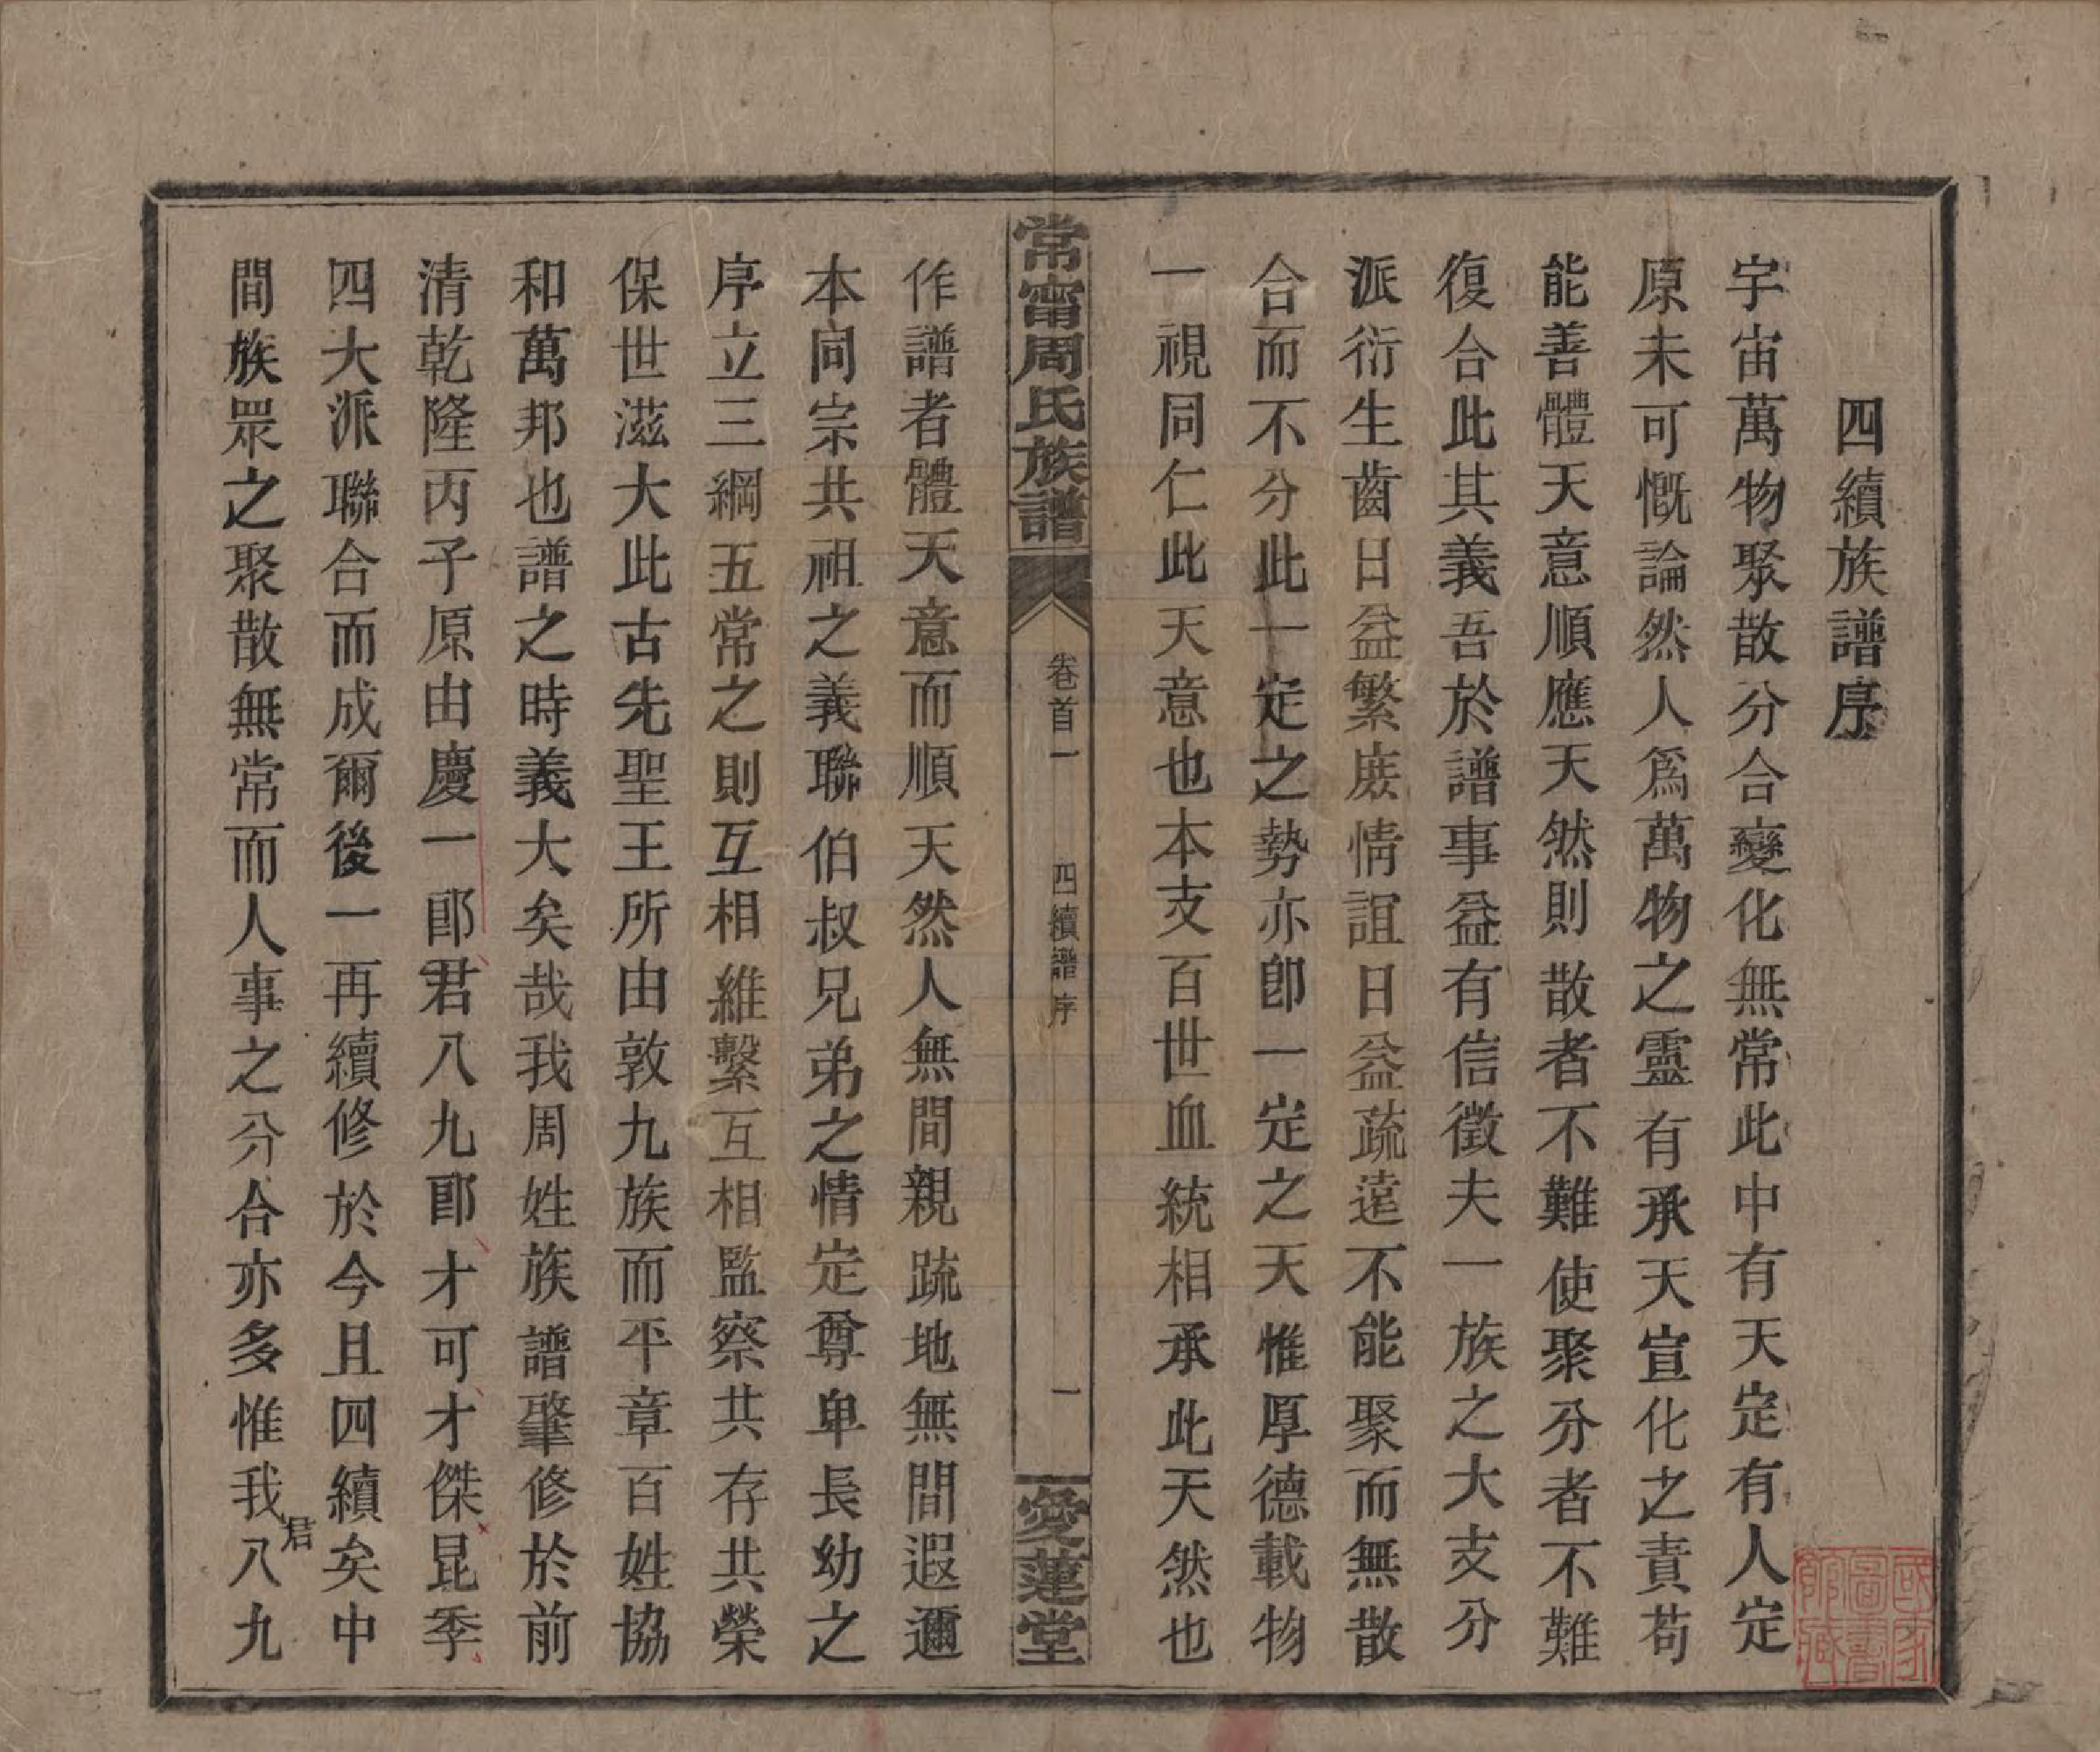 四續族譜序
宇宙萬物聚散分合變化無常此中有天定有人定
原未可慨論然人爲萬物之靈有承天宣化之責苟
能善體天意順應天然則散者不難使聚分者不難
復合此其義吾於譜事益有信徵夫一族之大支分
派衍生齒日益繁庶情誼日益疏遠不能聚而無散
合而不分此一定之勢亦卽一定之天惟厚德載物
一視同仁此天意也本支百世血統相承此天然也
常甯周氏族譜
卷首一
四續譜序
一
愛蓮堂
作譜者體天意而順天然人無間親疏地無間遐邇
本同宗共祖之義聯伯叔兄弟之情定尊卑長幼之
序立三綱五常之則互相維繫互相監察共存共榮
保世滋大此古先聖王所由敦九族而平章百姓協
和萬邦也譜之時義大矣哉我周姓族譜肇修於前
清乾隆丙子原由慶一郎君八九郎才可才傑昆季
四大派聯合而成爾後一再續修於今且四續矣中
間族眾之聚散無常而人事之分合亦多惟我君八九
國家圖書館藏